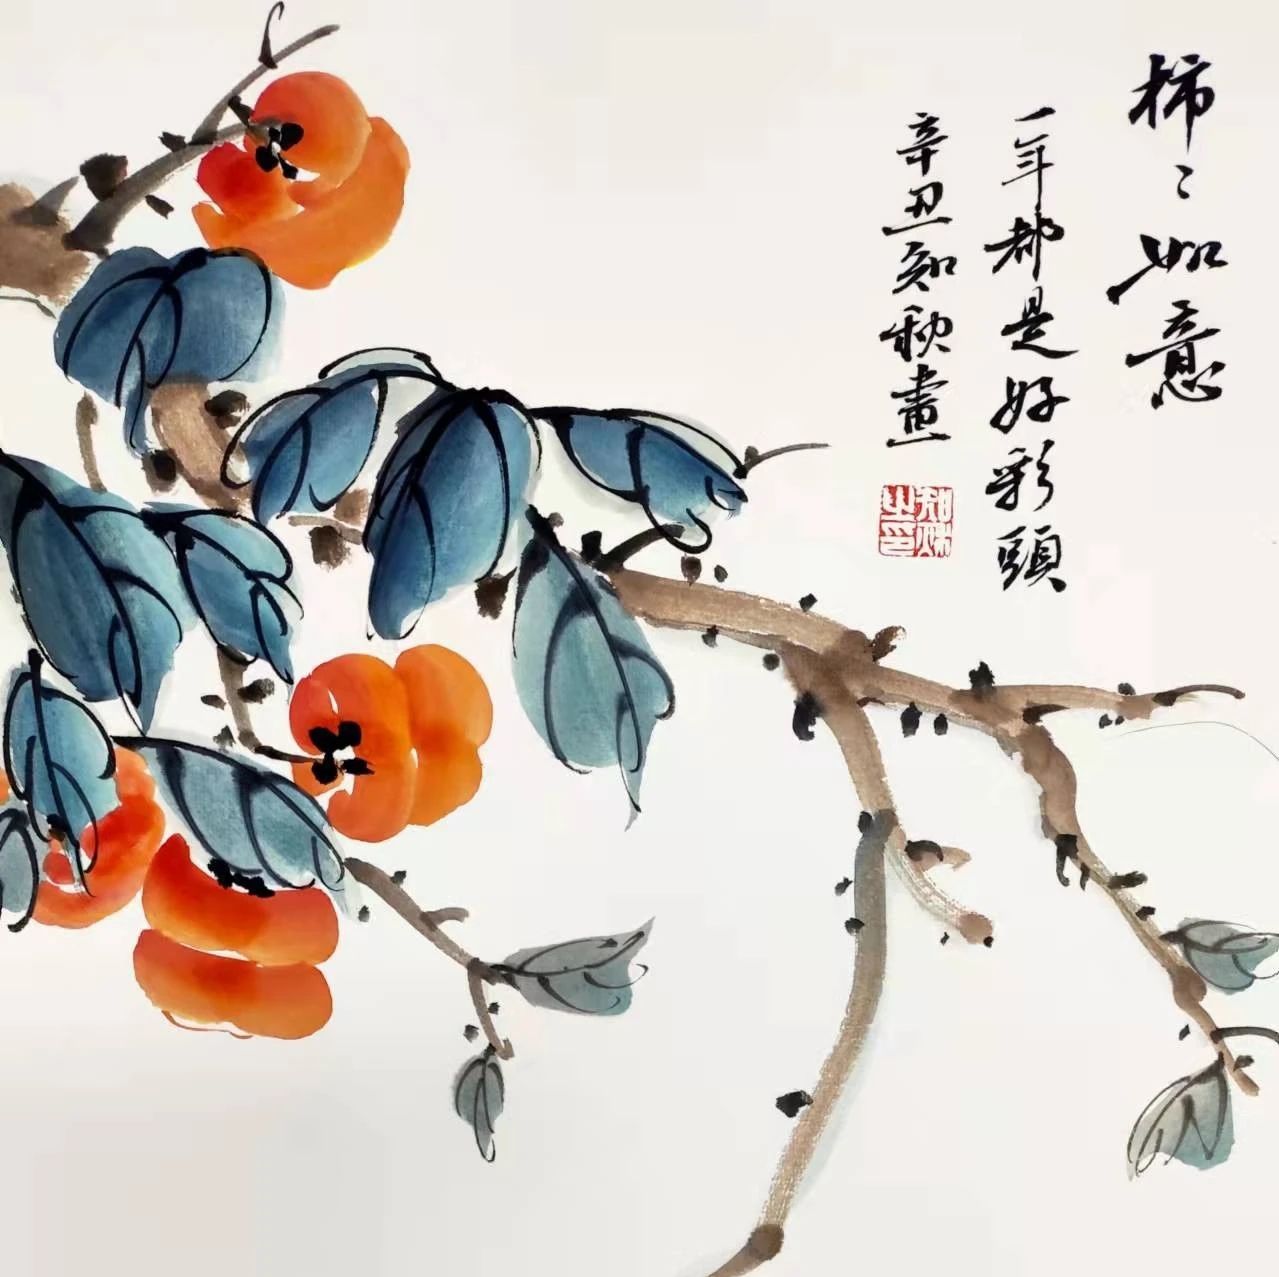 柿〻如意
一年都是好彩頭
辛丑知秋畫
知秋之印